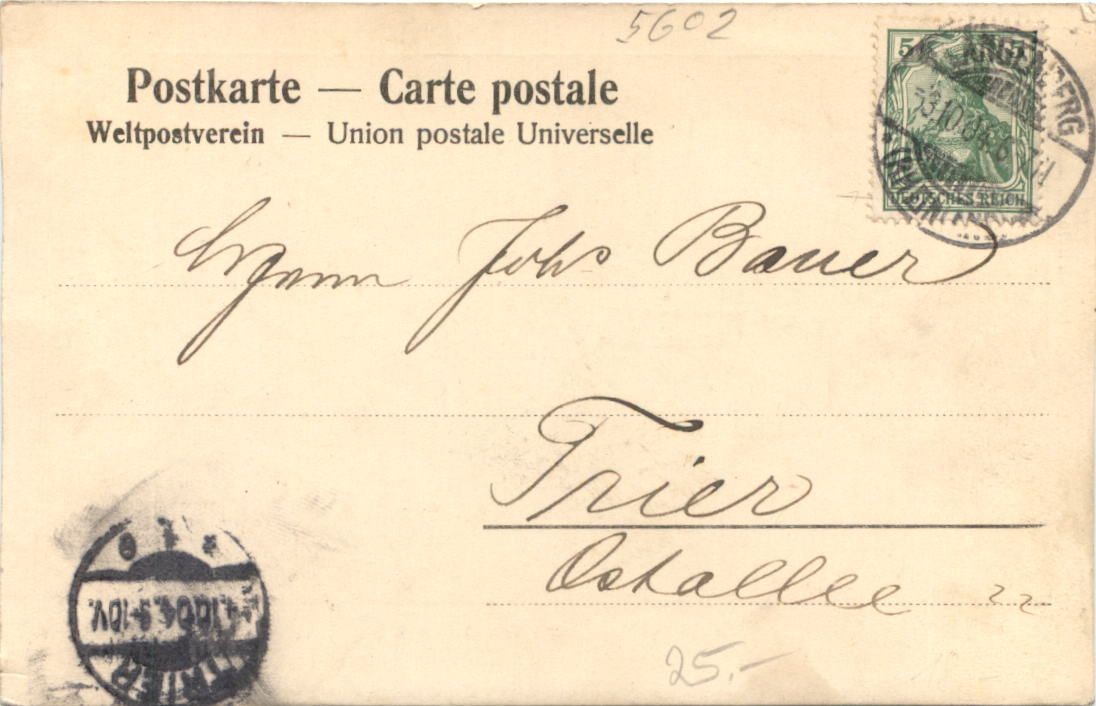 5602
Postkarte — Carte postale
Weltpostverein — Union postale Universelle
5
DEUTSCHES REICH
LANGENBERG
3.10.04. 6-7N
(RHEINLAND)
Johs Bauer
Trier
Ostallee 22
4.10.04. 9-10V.
TRIER
25.-